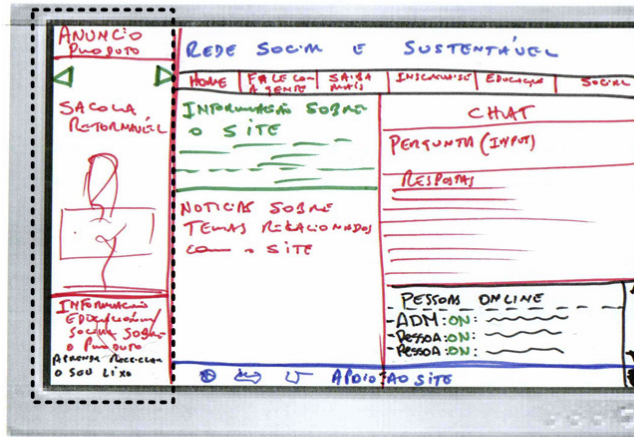 ANUNCIO
PRODUTO
SACOLA
RETORNAVÉL
INFORMACAO
EDUCACIONAL
SOCIAL SOBRE
O PRODUTO
APRENDA RECICLAR
O SEU LIXO
REDE SOCIAL E SUSTENTÁVEL
HOME
FALE COM
A GENTE
SAIBA
MAIS
INSCREVA-SE
EDUCAÇÃO
SOCIAL
INFORMAÇÃO SOBRE
O SITE
NOTICIAS SOBRE
TEMAS RELACIONADOS
COM O SITE
CHAT
PERGUNTA (INPUT)
RESPOSTAS
PESSOAS ONLINE
ADM: ON:
PESSOA: ON:
PESSOA: ON:
APOIO AO SITE